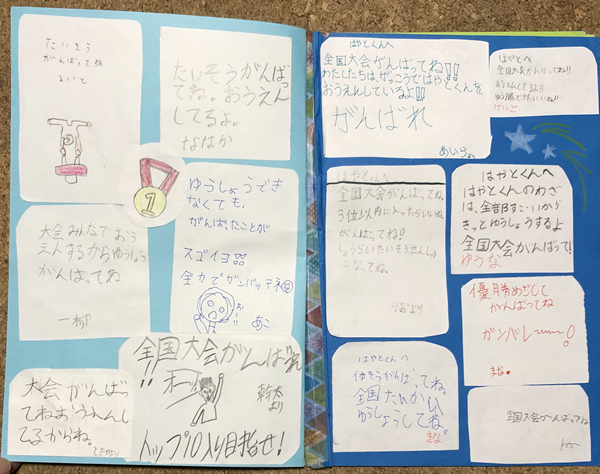 たいそう
がんばってね
るいと
たいそうがんばっ
てね。おうえん
してるよ。
ななか
1
ゆうしょうでき
なくても、
がんばったことが
スゴイヨ
全力でガンバッテネ
あこ
大会みんなでおう
えんするからゆうしょう
がんばってね
一柳
全国大会がんばれ
!!
オーッ
幹太
より
トップ10入り目指せ!
大会がんばっ
てねおうえんし
てるからね。
はやとくんへ
全国大会がんばってね!!
わたしたちは、がっこうではやとくんを
おうえんしているよ!!
がんばれ
あいりょり
はやとへ
全国大会がんばってね!!
おうえんしてるよ!!
けいご
はやとくんへ
全国大会がんばってね。
3位以内に入ったらいいね
がんばってね!
しょうらいたいそうせんしゅ
になってね。
より
はやとくんへ
はやとくんのわざ
は、全部すごいから
きっとゆうしょうするよ
全国大会がんばって!
ゆうな
優勝めざして
がんばってね
ガンバレ〜〜〜!
まな
はやとくんへ
たいそうがんばってね。
全国たいかい
ゆうしょうしてね。
きな
全国大会がんばってね